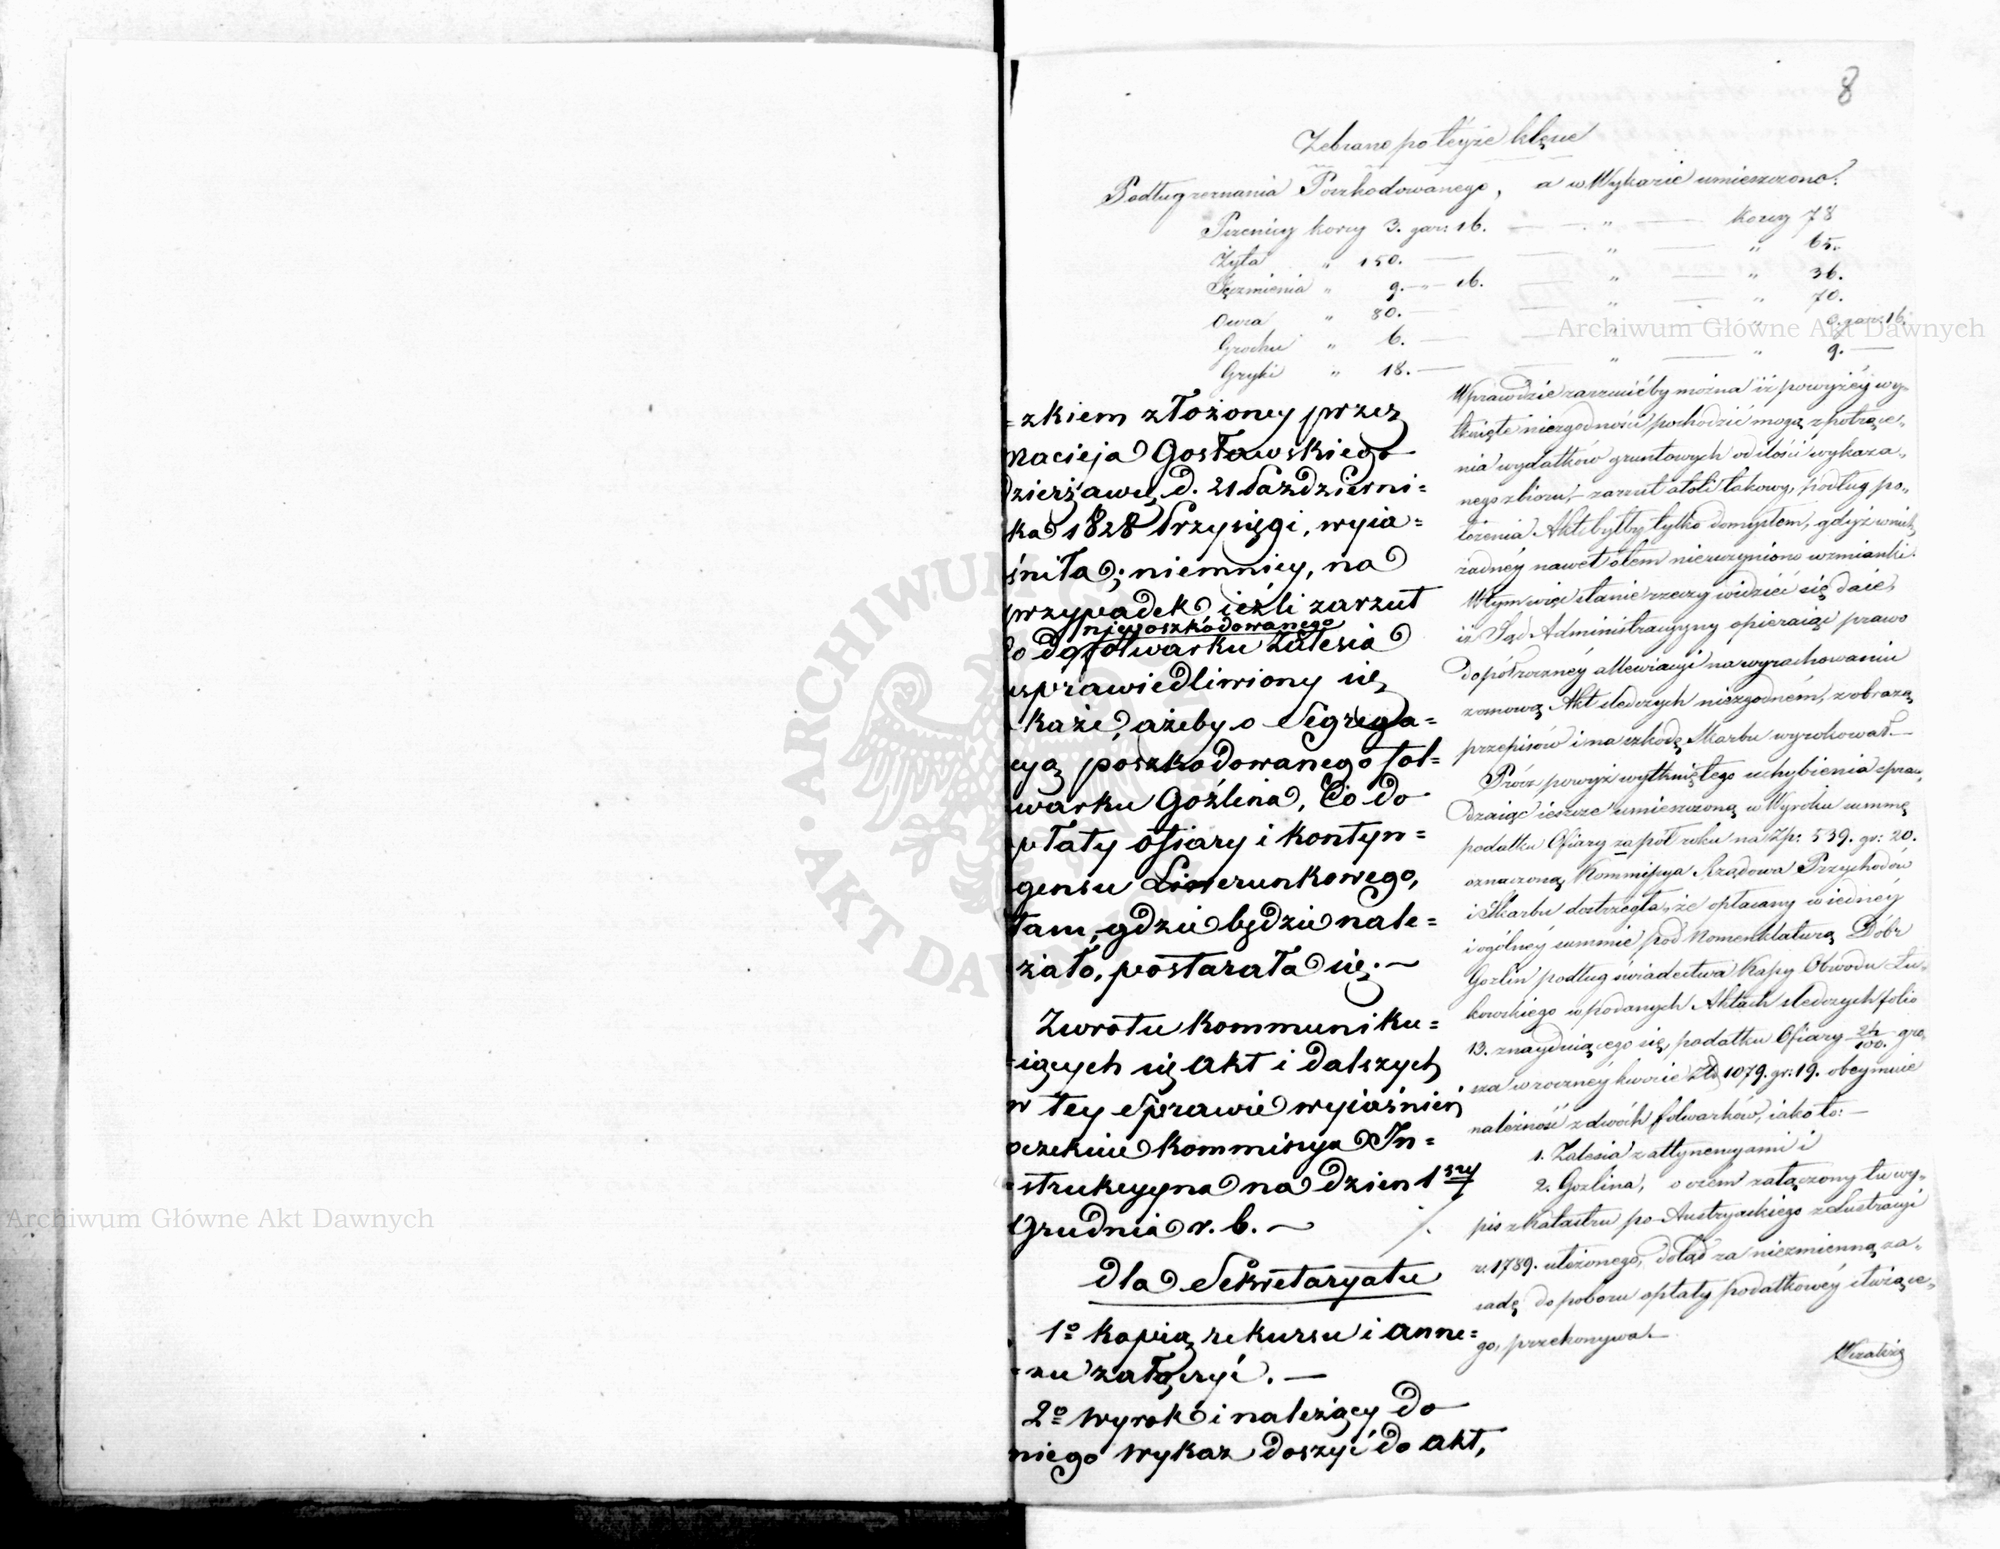 8
Zebrano po teyże klęsce
Podług zeznania Poszkodowanego, a w Wykazie umieszczono:
Pszenicy korcy 3. gar: 16. — „ — Korcy 78
Żyta „ 150. — „ — „ 65.
Jęczmienia „ 9. — „ — 16. — „ — „ 36.
Owsa „ 80. — „ — „ 70.
Grochu „ 6. — „ — „ 0. gar: 16.
Gryki „ 18. — „ — „ 9. —
zkiem złożoney przez
Macieja Gosławskiego
dzierżawcę d. 21 Październi=
ka 1828 Przysięgi, wyia=
śniła; niemniey, na
przypadek ieżli zarzut
nieposzkodowanego
co do folwarku Zalesia
usprawiedliwiony się
każe, ażeby o Segrega=
cyą poszkodowanego fol=
warku Goźlina, Co do
opłaty ofiary i kontyn=
gensu Liwerunkowego,
tam, gdzie będzie nale=
żało, postarała się. —
Zwrotu kommuniku=
=iących się akt i dalszych
w tey Sprawie wyiaśnień
oczekuie Kommissya In=
=strukcyyna na dzień 1szy
Grudnia r. b. — /.
dla Sekretaryatu
1º Kopią rekursu i anne=
=xu załączyć. —
2º Wyrok i należący do
niego Wykaz doszyć do akt,
Wprawdzie zarzucićby można iż powyżéy wy-
tknięte niezgodności pochodzić mogą z potrące-
nia wydatków gruntowych od ilości wykaza-
nego zbioru, – zarzut atoli takowy, podług po-
łożenia Akt byłby tylko domysłem, gdyż w nich
żadnéy nawet o tem nieuczyniono wzmianki.
W tym więc stanie rzeczy widzieć się daie,
iż Sąd Administracyyny opieraiąc prawo
do półroczney allewiacyi na wyrachowaniu
z osnową Akt śledczych niezgodném, z obrazą
przepisów i na szkodę Skarbu wyrokował. —
Prócz powyż wytkniętego uchybienia spraw-
dzaiąc ieszcze umieszczoną w Wyroku summę
podatku Ofiary za pół roku na Zp: 539. gr: 20.
oznaczoną, Kommissya Rządowa Przychodów
i Skarbu dostrzegła, że opłacany w iednéy
i ogólnéy summie pod Nomenklaturą Dóbr
Gozlin podług świadectwa Kassy Obwodu Łu-
kowskiego w podanych Aktach śledczych folio
13. znayduiącego się, podatku Ofiary 24/100. gro-
sza w rocznéy kwocie Zł 1079. gr: 19. obeymuie
należność z dwóch folwarków, iako to: —
1. Zalesia z attynencyami i
2. Gozlina, o czem załączony tu wy-
pis z Katastru po-Austryackiego z Lustracyi
r. 1789. ułożonego, dotąd za niezmienną za-
sadę do poboru opłaty podatkowéy służące-
go, przekonywa. —